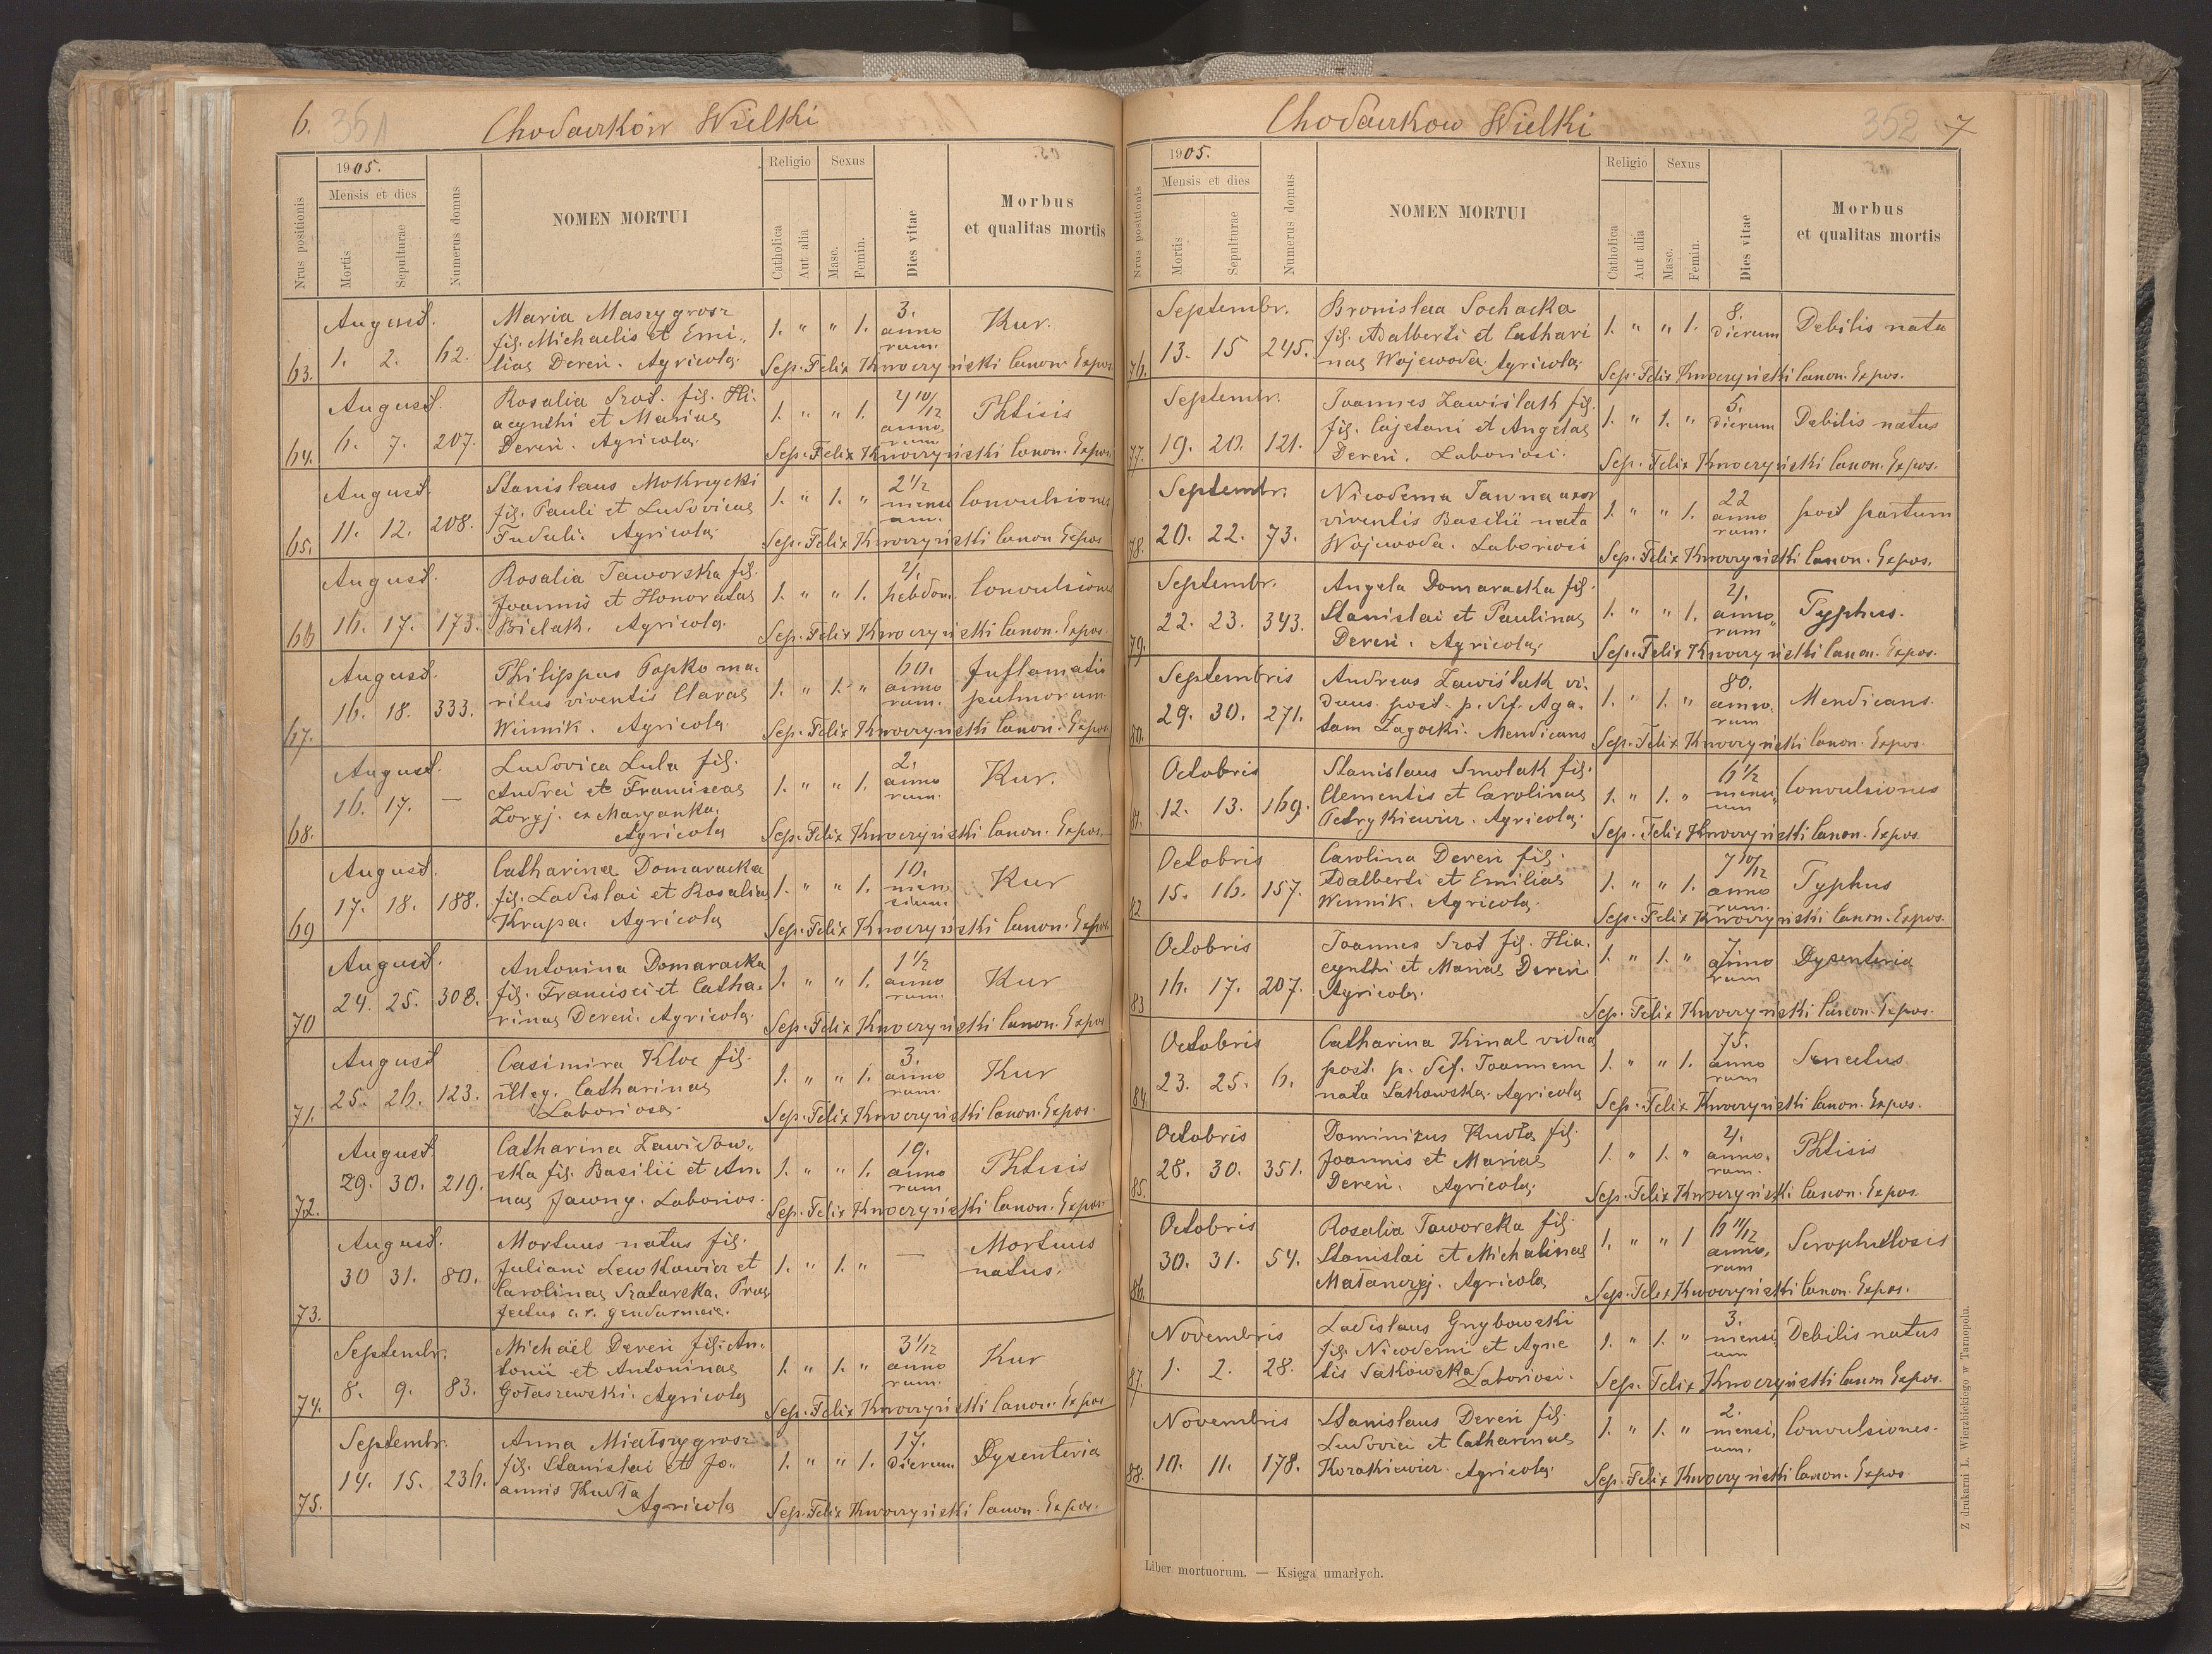 6. 351 Chodaczków Wielki
1905.
Mensis et dies
Religio Sexus
Nrus positionis
Mortis
Sepulturae
Numerus domus
NOMEN MORTUI
Catholica
Aut alia
Masc.
Femin.
Dies vitae
Morbus
et qualitas mortis
63. August. 1. 2. 62.
Maria Maszygrosz
fil. Michaelis et Emi„
liae Dereń. Agricolae
1. „ „ 1. 3. annorum. Kur.
Sep. Felix Kwoczyński Canon. Expos.
64. August. 6. 7. 207.
Rosalia Srot. fil. Hi.
acynthi et Mariae
Dereń. Agricolae
1. „ „ 1. 4 10/12 annorum Phtisis
Sep. Felix Kwoczyński Canon. Expos.
65. August. 11. 12. 208.
Stanislaus Mokrzycki
fil. Pauli et Ludovicae
Fudali. Agricolae
1. „ 1. „ 2 1/2 mensium. Convulsiones
Sep. Felix Kwoczyński Canon Expos
66 August. 16. 17. 173.
Rosalia Jaworska fil.
Joannis et Honoratae
Bielak. Agricolae
1. „ „ 1. 2. hebdom. Convulsiones
Sep. Felix Kwoczyński Canon. Expos.
67. August. 16. 18. 333.
Philippus Popko ma.
ritus viventis Clarae
Winnik. Agricola
1. „ 1. „ 60. annorum. Inflamatio
pulmonum
Sep. Felix Kwoczyński Canon. Expos.
68. August. 16. 17. —
Ludovica Lula fil.
Andrei et Franciscae
Zoryj. ex Maryanka.
Agricolae
1. „ „ 1. 2. annorum. Kur.
Sep. Felix Kwoczyński Canon. Expos.
69 August. 17. 18. 188.
Catharina Domaracka
fil. Ladislai et Rosaliae
Krupa. Agricolae
1. „ „ 1. 10. mensium. Kur
Sep. Felix Kwoczyński Canon. Expos.
70 August. 24. 25. 308.
Antonina Domaracka
fil. Francisci et Catha.
rinae Dereń. Agricolae
1. „ „ 1. 1 1/2 annorum. Kur
Sep. Felix Kwoczyński Canon. Expos
71. August 25. 26. 123.
Casimira Kloc fil.
illeg. Catharinae
Laboriosae.
1. „ „ 1. 3. annorum. Kur
Sep. Felix Kwoczyński Canon. Expos.
72. August. 29. 30. 219.
Catharina Zawidow„
ska fil. Basilii et An.
nae Jawny. Laborios.
1. „ „ 1. 19. annorum Phtisis
Sep. Felix Kwoczyński Canon. Expos.
73. August. 30 31. 80.
Mortuus natus fil.
Juliani Lewkowicz et
Carolinae Szatarska. Prae
fectus c. r. gendarmeis.
1. „ 1. „ — Mortuus
natus.
74. Septembr. 8. 9. 83.
Michaël Dereń fil. An.
tonii et Antoninae
Gołaszewski. Agricolae
1. „ 1. „ 3 1/12 annorum. Kur
Sep. Felix Kwoczyński Canon. Expos
75. Septembr. 14. 15. 236.
Anna Miałszygrosz
fil. Stanislai et Jo„
annis Kudła
Agricolae
1. „ „ 1. 17. dierum Dysenteria
Sep. Felix Kwoczyński Canon. Expos.
Chodaczkow Wielki 352 7
1905.
Mensis et dies
Religio Sexus
Nrus positionis
Mortis
Sepulturae
Numerus domus
NOMEN MORTUI
Catholica
Aut alia
Masc.
Femin.
Dies vitae
Morbus
et qualitas mortis
76. Septembr. 13. 15 245.
Bronislaa Sochacka
fil. Adalberti et Cathari
nae Wojewoda. Agricolae
1. „ „ 1. 8. dierum Debilis nata
Sep. Felix Kwoczyński Canon. Expos.
77. Septembr. 19. 20. 121.
Joannes Zawiślak fil.
fil. Cajetani et Angelae
Dereń. Laboriosi.
1. „ 1. „ 5. dierum Debilis natus
Sep. Felix Kwoczyński Canon. Expos.
78. Septembr. 20. 22. 73.
Nicodema Jawna uxor
viventis Basilii nata
Wojewoda. Laboriosi
1. „ „ 1. 22 annorum. post partum
Sep. Felix Kwoczyński Canon. Expos.
79. Septembr. 22. 23. 343.
Angela Domaracka fil.
Stanislai et Paulinae
Dereń. Agricolae
1. „ „ 1. 2. annorum Typhus.
Sep. Felix Kwoczyński Canon. Expos.
80. Septembris 29. 30. 271.
Andreas Zawiślak vi.
duus post p. def. Aga.
tam Zagocki. Mendicans
1. „ 1. „ 80. annorum Mendicans.
Sep. Felix Kwoczyński Canon. Expos.
81. Octobris 12. 13. 169.
Stanislaus Smolak fil.
Clementis et Carolinae
Petrykiewicz. Agricolae
1. „ 1. „ 6 1/2 mensium Convulsiones
Sep. Felix Kwoczyński Canon. Expos
82 Octobris 15. 16. 157.
Carolina Dereń fil.
Adalberti et Emiliae
Winnik. Agricolae
1. „ „ 1. 7 10/12 annorum. Typhus
Sep. Felix Kwoczyński Canon. Expos.
83 Octobris 16. 17. 207.
Joannes Srot fil. Hia.
cynthi et Mariae Dereń
Agricolae
1. „ 1. „ 7 annorum Dysenteria
Sep. Felix Kwoczyński Canon. Expos.
84. Octobris 23. 25. 6.
Catharina Kinal vidua
post. p. def. Joannem
nata Sakowska. Agricola
1. „ „ 1. 75. annorum Senectus
Sep. Felix Kwoczyński Canon. Expos.
85. Octobris 28. 30. 351.
Dominikus Kudła fil.
Joannis et Mariae
Dereń. Agricolae
1. „ 1. „ 2. annorum. Phtisis
Sep. Felix Kwoczyński Canon. Expos.
86. Octobris 30. 31. 54.
Rosalia Jaworska fil.
Stanislai et Michalinae
Matanczyj. Agricolae
1. „ „ 1 6 11/12 annorum Scrophulosis
Sep. Felix Kwoczyński Canon. Expos.
87. Novembris 1. 2. 28.
Ladislaus Grzybowski
fil. Nicodemi et Agne
tis Sakowska Laboriosi.
1. „ 1. „ 3. mensium Debilis natus
Sep. Felix Kwoczyński Canon Expos.
88. Novembris 10. 11. 178.
Stanislaus Dereń fil.
Ludovici et Catharinae
Koratkiewicz. Agricolae
1. „ 1. „ 2. mensium. Convulsiones.
Sep. Felix Kwoczyński Canon. Expos.
Liber mortuorum. — Księga umarłych.
Z drukarni L. Wierzbickiego w Tarnopolu.